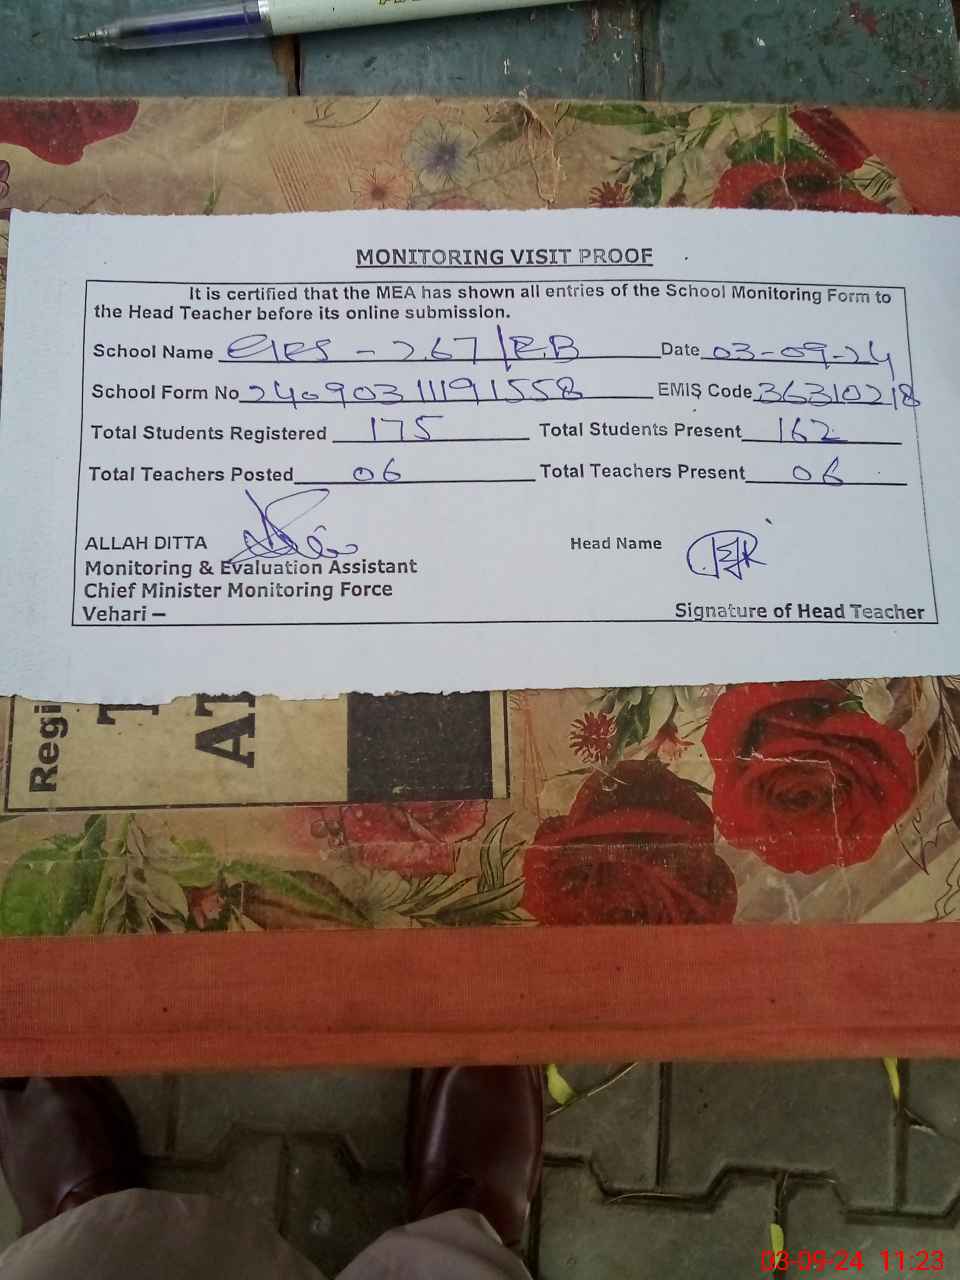 MONITORING VISIT PROOF
It is certified that the MEA has shown all entries of the School Monitoring Form to
the Head Teacher before its online submission.
School Name GES - 267/E.B Date 03-09-24
School Form No 24090311191558 EMIS Code 36310218
Total Students Registered 175 Total Students Present 162
Total Teachers Posted 06 Total Teachers Present 06
ALLAH DITTA Head Name
Monitoring & Evaluation Assistant
Chief Minister Monitoring Force
Vehari – Signature of Head Teacher
Regi
03-09-24 11:23